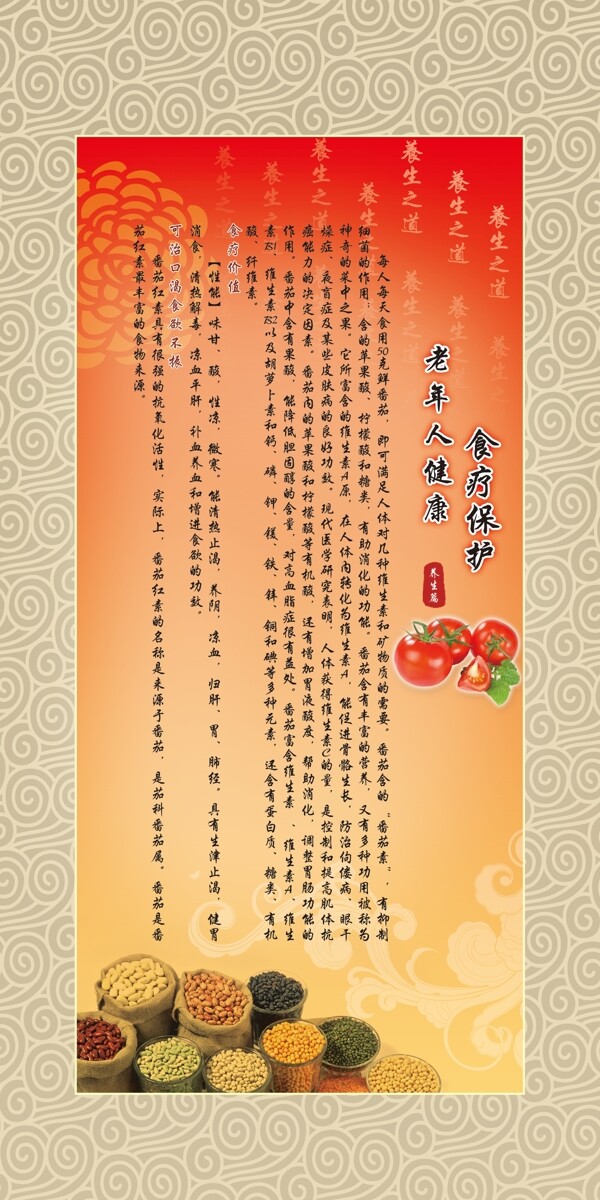 養生之道
養生之道
養生之道
養生之道
養生之道
養生之道
養生之道
養生之道
養生之道
養生之道
食疗保护
老年人健康
养生篇
每人每天食用50克鲜番茄，即可满足人体对几种维生素和矿物质的需要。番茄含的“番茄素”，有抑制
细菌的作用；含的苹果酸、柠檬酸和糖类，有助消化的功能。番茄含有丰富的营养，又有多种功用被称为
神奇的菜中之果。它所富含的维生素A原，在人体内转化为维生素A，能促进骨骼生长，防治佝偻病、眼干
燥症、夜盲症及某些皮肤病的良好功效。现代医学研究表明，人体获得维生素C的量，是控制和提高肌体抗
癌能力的决定因素。番茄内的苹果酸和柠檬酸等有机酸，还有增加胃液酸度，帮助消化，调整胃肠功能的
作用。番茄中含有果酸，能降低胆固醇的含量，对高血脂症很有益处。番茄富含维生素、维生素A、维生
素B1、维生素B2以及胡萝卜素和钙、磷、钾、镁、铁、锌、铜和碘等多种元素，还含有蛋白质、糖类、有机
酸、纤维素。
食疗价值
【性能】味甘、酸，性凉，微寒。能清热止渴，养阴，凉血，归肝、胃、肺经。具有生津止渴，健胃
消食，清热解毒，凉血平肝，补血养血和增进食欲的功效。
可治口渴食欲不振
番茄红素具有很强的抗氧化活性，实际上，番茄红素的名称是来源于番茄，是茄科番茄属。番茄是番
茄红素最丰富的食物来源。